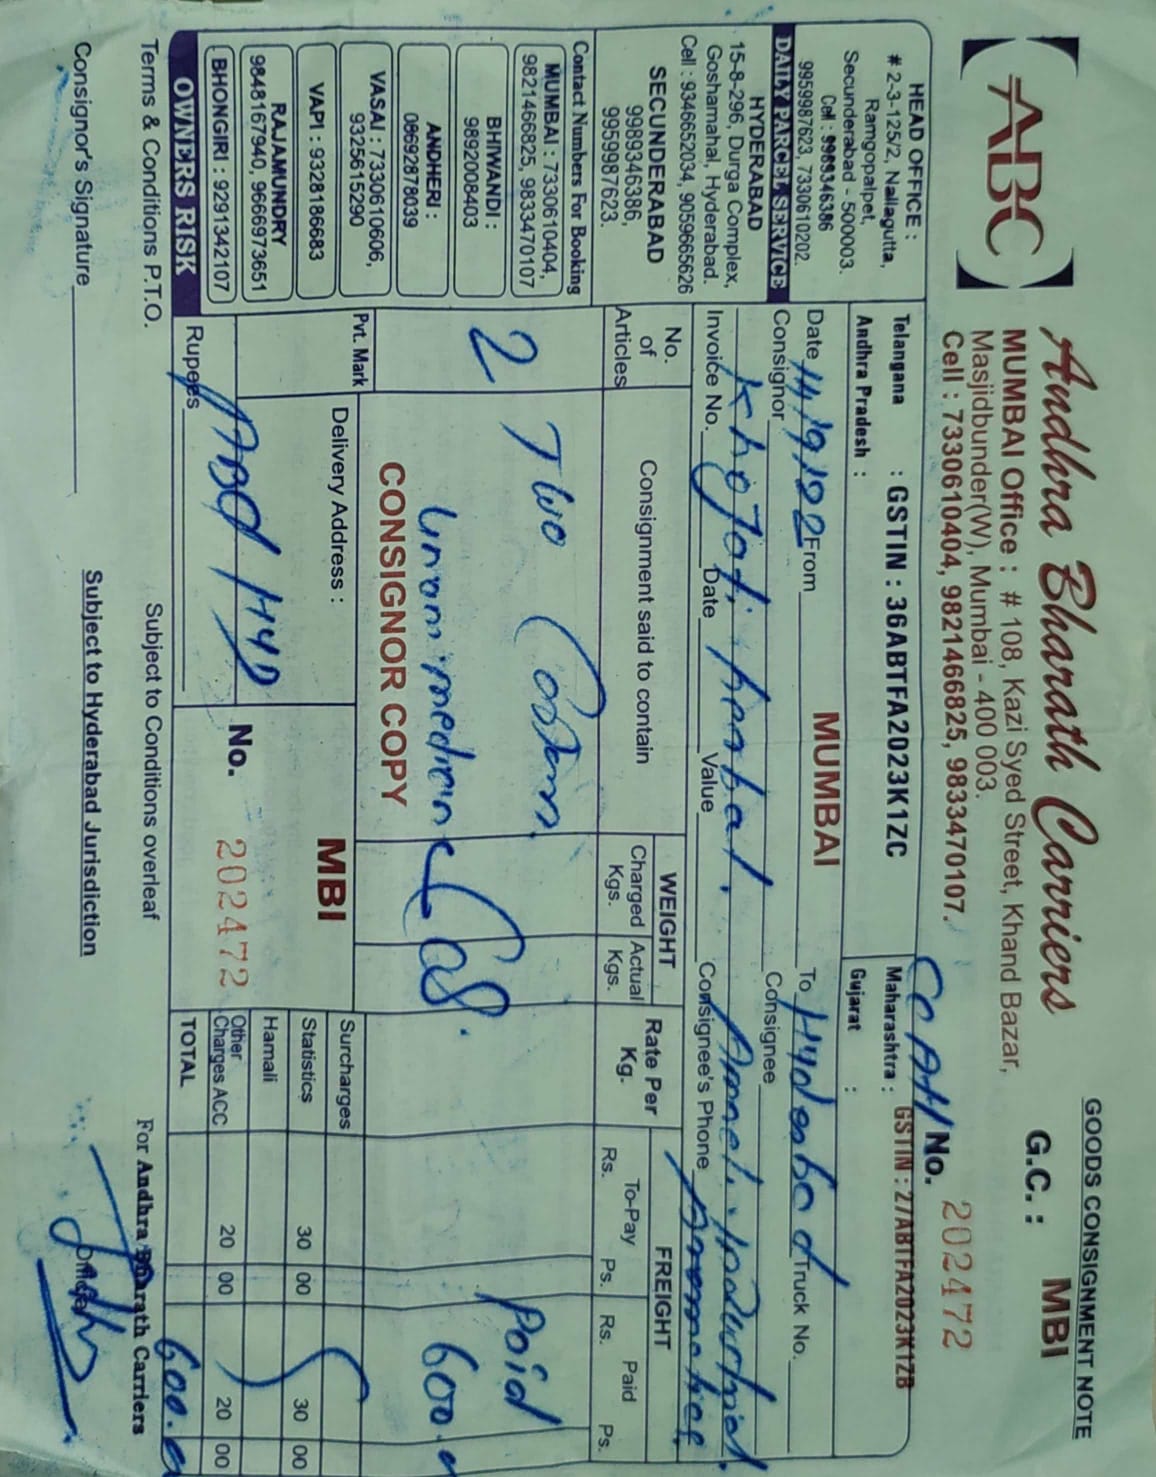 GOODS CONSIGNMENT NOTE
ABC
Andhra Bharath Carriers
G.C. : MBI
MUMBAI Office : # 108, Kazi Syed Street, Khand Bazar,
Masjidbunder(W), Mumbai - 400 003.
Cell : 7330610404, 9821466825, 9833470107.
No. 202472
HEAD OFFICE :
# 2-3-125/2, Nallagutta,
Ramgopalpet,
Secunderabad - 500003.
Cell : 9989346386
9959987623, 7330610202.
DAILY PARCEL SERVICE
HYDERABAD
15-8-296, Durga Complex,
Goshamahal, Hyderabad.
Cell : 9346652034, 9059665626
SECUNDERABAD
9989346386,
9959987623.
Contact Numbers For Booking
MUMBAI : 7330610404,
9821466825, 9833470107
BHIWANDI :
9892008403
ANDHERI :
08692878039
VASAI : 7330610606,
9325615290
VAPI : 9328186683
RAJAMUNDRY
9848167940, 9666973651
BHONGIRI : 9291342107
OWNERS RISK
Telangana : GSTIN : 36ABTFA2023K1ZC
Andhra Pradesh :
Maharashtra : GSTIN : 27ABTFA2023K1ZB
Gujarat :
Date 14/9/22 From MUMBAI To Hyderabad Truck No.
Consignor Consignee
Khojati herbal.
Invoice No. Date Value Consignee's Phone
No. of Articles
Consignment said to contain
WEIGHT
Charged Kgs.
Actual Kgs.
Rate Per Kg.
FREIGHT
To-Pay
Rs. Ps.
Paid
Rs. Ps.
2
Two
Paid
600.
CONSIGNOR COPY
Pvt. Mark
Delivery Address :
MBI
No. 202472
Rupees
Surcharges
Statistics 30 00 30 00
Hamali
Other Charges ACC 20 00 20 00
TOTAL 600.
Terms & Conditions P.T.O.
Subject to Conditions overleaf
For Andhra Bharath Carriers
Consignor's Signature
Subject to Hyderabad Jurisdiction